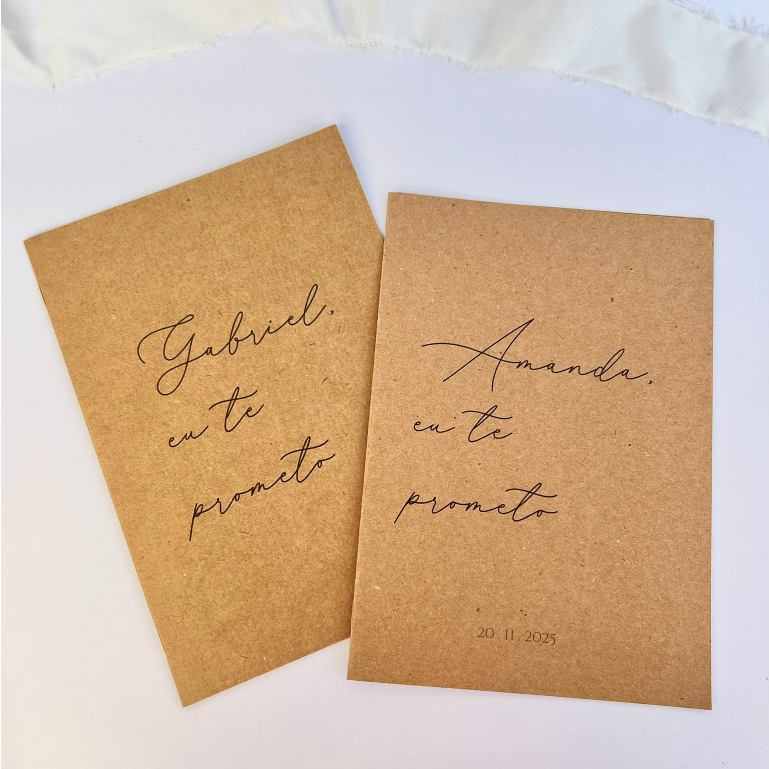 Gabriel,
eu te
prometo
Amanda,
eu te
prometo
20.11.2025